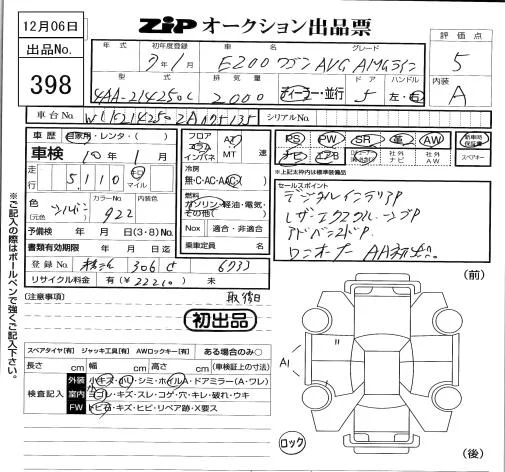 12月06日
ZIP オークション出品票
出品No.
398
年式 初年度登録 車名 グレード
7年1月 E200 ワゴン AVG AMGライン
評価点
5
型式 排気量 ドア ハンドル
4AA-214250C 2000 ディーラー・並行 5 左・右
内装
A
車台No. シリアルNo.
車歴 自家用・レンタ・( )
車検 10年1月
走行 5,110 キロ マイル
色(元色) シルバー カラーNo. 922 内装色
予備検 年 月 日(3・8)No.
書類有効期限 年 月 日迄
登録No.
リサイクル料金 有(¥22210) 未
フロア コラム インパネ AT MT 速
冷房 無・C・AC・AAC( )
燃料 ガソリン・軽油・電気・その他( )
Nox 適合・非適合
乗車定員 名
PS PW SR 革 AW
ナビ エアB 社外ナビ 社外AW
新車時保証書
スペアキー
*上記太枠内は標準装備品
セールスポイント
デジタルインテリアP
レザーエクスクルーシブP
アドバンスドP
ワンオーナー
※ご記入の際はボールペンで強くご記入下さい。
(注意事項)
初出品
スペアタイヤ[有] ジャッキ工具[有] AWロックキー[有] ある場合のみ○
長さ cm 幅 cm 高さ cm (車検証上の寸法)
検査記入
外装 小キズ・小リ・シミ・ホイルA・ドアミラー(A・ワレ)
室内 ヨゴレ・キズ・スレ・コゲ・穴・キレ・破れ・ウキ
FW トビ石・キズ・ヒビ・リペア跡・X要ス
(前)
A1
ロック
(後)